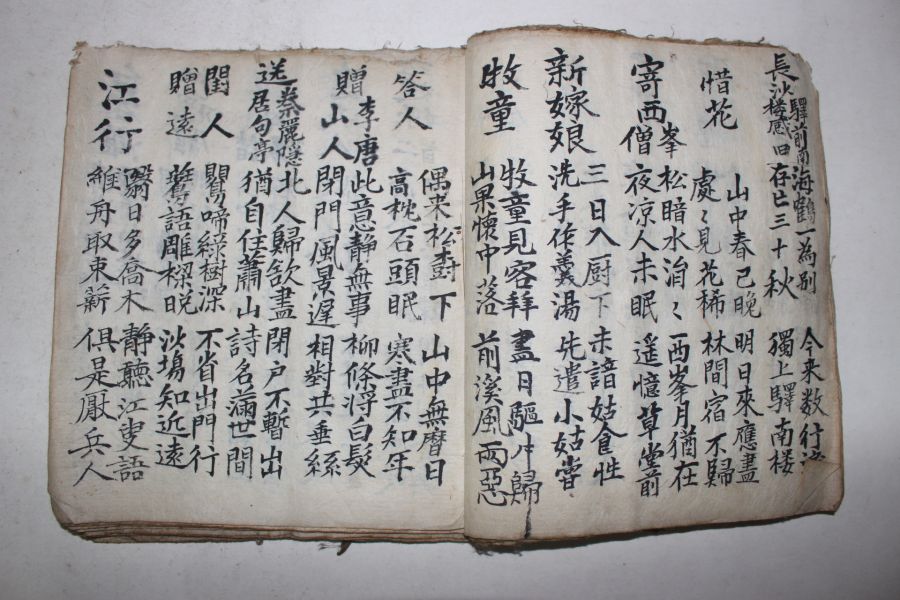 長沙驛前南楼感旧
海鶴一為別 今来数行淚
存亡三十秋 獨上驛南楼
惜花
山中春已晚 明日來應盡
處〻見花稀 林間宿不歸
寄西峯僧
松暗水涓〻 西峯月猶在
夜凉人未眠 遥憶草堂前
新嫁娘
三日入厨下 未諳姑食性
洗手作羹湯 先遣小姑嘗
牧童
牧童見客拜 盡日驅牛歸
山果懷中落 前溪風雨惡
答人
偶来松樹下 山中無曆日
高枕石頭眠 寒盡不知年
贈李唐山人
此意静無事 柳條将白髮
閉門風景遅 相對共垂絲
送秦麗隱居句亭
北人歸欲盡 閉戶不暫出
猶自住蕭山 詩名滿世間
閨人贈遠
鶯啼綠樹深 不省出門行
鷰語雕樑晚 沙塲知近遠
江行
翳日多喬木 静聽江叟語
維舟取東薪 俱是厭兵人